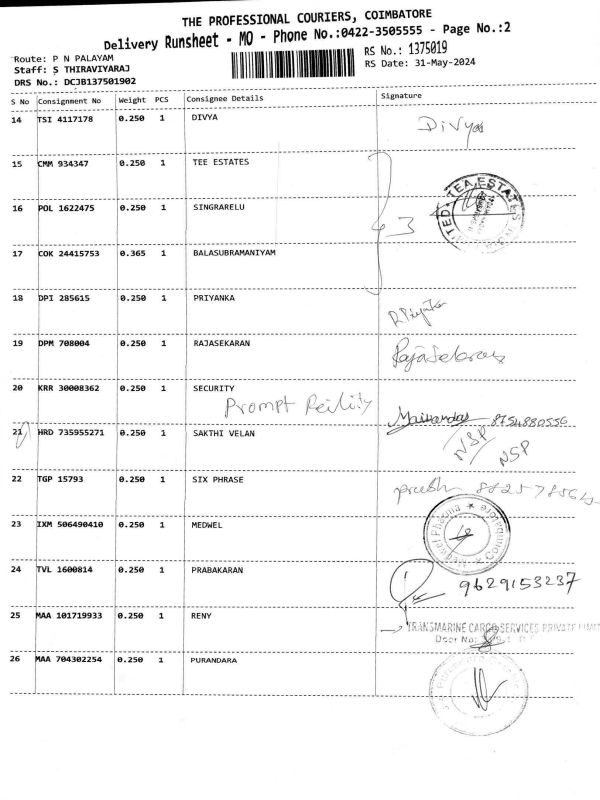 THE PROFESSIONAL COURIERS, COIMBATORE
Delivery Runsheet - MO - Phone No.:0422-3505555 - Page No.:2
Route: P N PALAYAM
Staff: S THIRAVIYARAJ
DRS No.: DCJB137501902
RS No.: 1375019
RS Date: 31-May-2024
S No Consignment No Weight PCS Consignee Details Signature
14 TSI 4117178 0.250 1 DIVYA Divya
15 CMM 934347 0.250 1 TEE ESTATES
16 POL 1622475 0.250 1 SINGRARELU 3
TEA ESTATES
17 COK 24415753 0.365 1 BALASUBRAMANIYAM
18 DPI 285615 0.250 1 PRIYANKA R. Priyanka
19 DPM 708004 0.250 1 RAJASEKARAN Rajasekaran
20 KRR 30008362 0.250 1 SECURITY
Prompt
21 HRD 735955271 0.250 1 SAKTHI VELAN NSP
NSP
22 TGP 15793 0.250 1 SIX PHRASE
23 IXM 506490410 0.250 1 MEDWEL
Medwel Pharma Coimbatore
24 TVL 1600814 0.250 1 PRABAKARAN 9629153237
25 MAA 101719933 0.250 1 RENY
TRANSMARINE CARGO SERVICES PRIVATE LIMIT
Door No:
26 MAA 704302254 0.250 1 PURANDARA